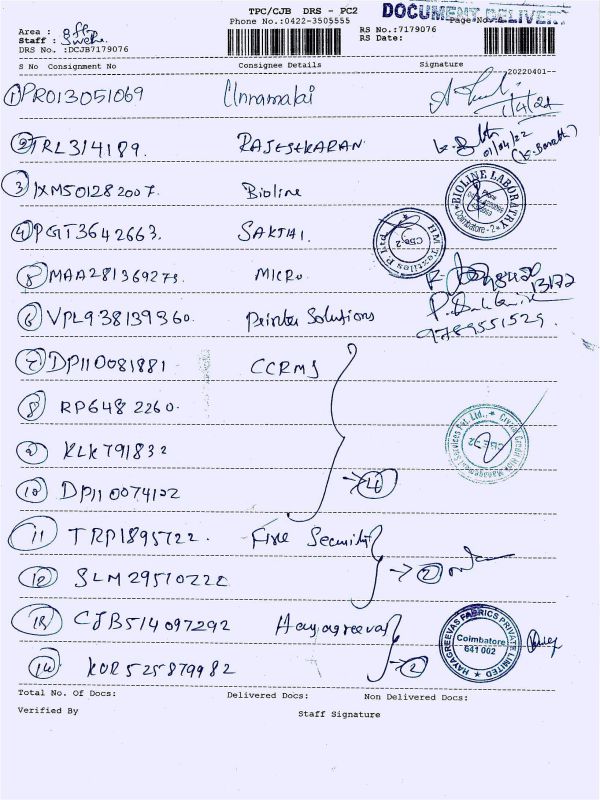 TPC/CJB DRS - PC2
DOCUMENT DELIVERY
Phone No.:0422-3505555
Area :
Staff :
DRS No. :DCJB7179076
RS No.:7179076
RS Date:
S No Consignment No Consignee Details Signature 20220401--
1 PRO13051069 Unnamalai 1/4/22
2 TRL314189. RAJESEKARAN 01/04/22
3 IXM501282007. Bioline
BIOLINE LABORATRY Coimbatore - 2
4 PGT3642663. SAKTHI.
HM Textiles P. Ltd. CBE-2
5 MAA281369273 MICRO
6 VPL938139360 Printer Solutions 9789551529.
7 DP110081881 CCRMS
8 RP6482260.
9 KLK791832
Civic Credit Risk Management Services Pvt. Ltd.,
10 DP110074102 → 4
11 TRP1895722. Fire Security
12 SLM29510220 → 2
13 CJB514097292 Hayagreevas
HAYAGREEVAS FABRICS PRIVATE LIMITED
Coimbatore
641 002
14 KOR525879982 → 2
Total No. Of Docs: Delivered Docs: Non Delivered Docs:
Verified By Staff Signature